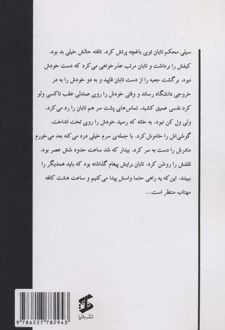 سیلی محکم تابان توی باغچه پرتش کرد. تافته حالش خیلی بد بود.
کیفش را برداشت و تابان مرتب عذرخواهی می‌کرد که دست خودش
نبود. برگشت جعبه را از دست تابان قاپید و به دو خودش را به در
خروجی دانشگاه رساند و وقتی خودش را روی صندلی عقب تاکسی ولو
کرد نفسی عمیق کشید. تماس‌های پشت سر هم تابان را رد می‌کرد.
ولی ول کن نبود. به خانه که رسید خودش را روی تخت انداخت.
گوشی‌اش را خاموش کرد. با جمله‌ی سرم خیلی درد می‌کند بعد می‌خورم
مادرش را دست به سر کرد. بیدار که شد ساعت حدود شش عصر بود.
تلفنش را روشن کرد. تابان برایش پیغام گذاشته بود که باید همدیگر را
ببینند. این‌که یه راهی حتما واسش پیدا می‌کنیم و ساعت هشت کافه
مهتاب منتظر است...
نشر داتیا
9 786227 782943